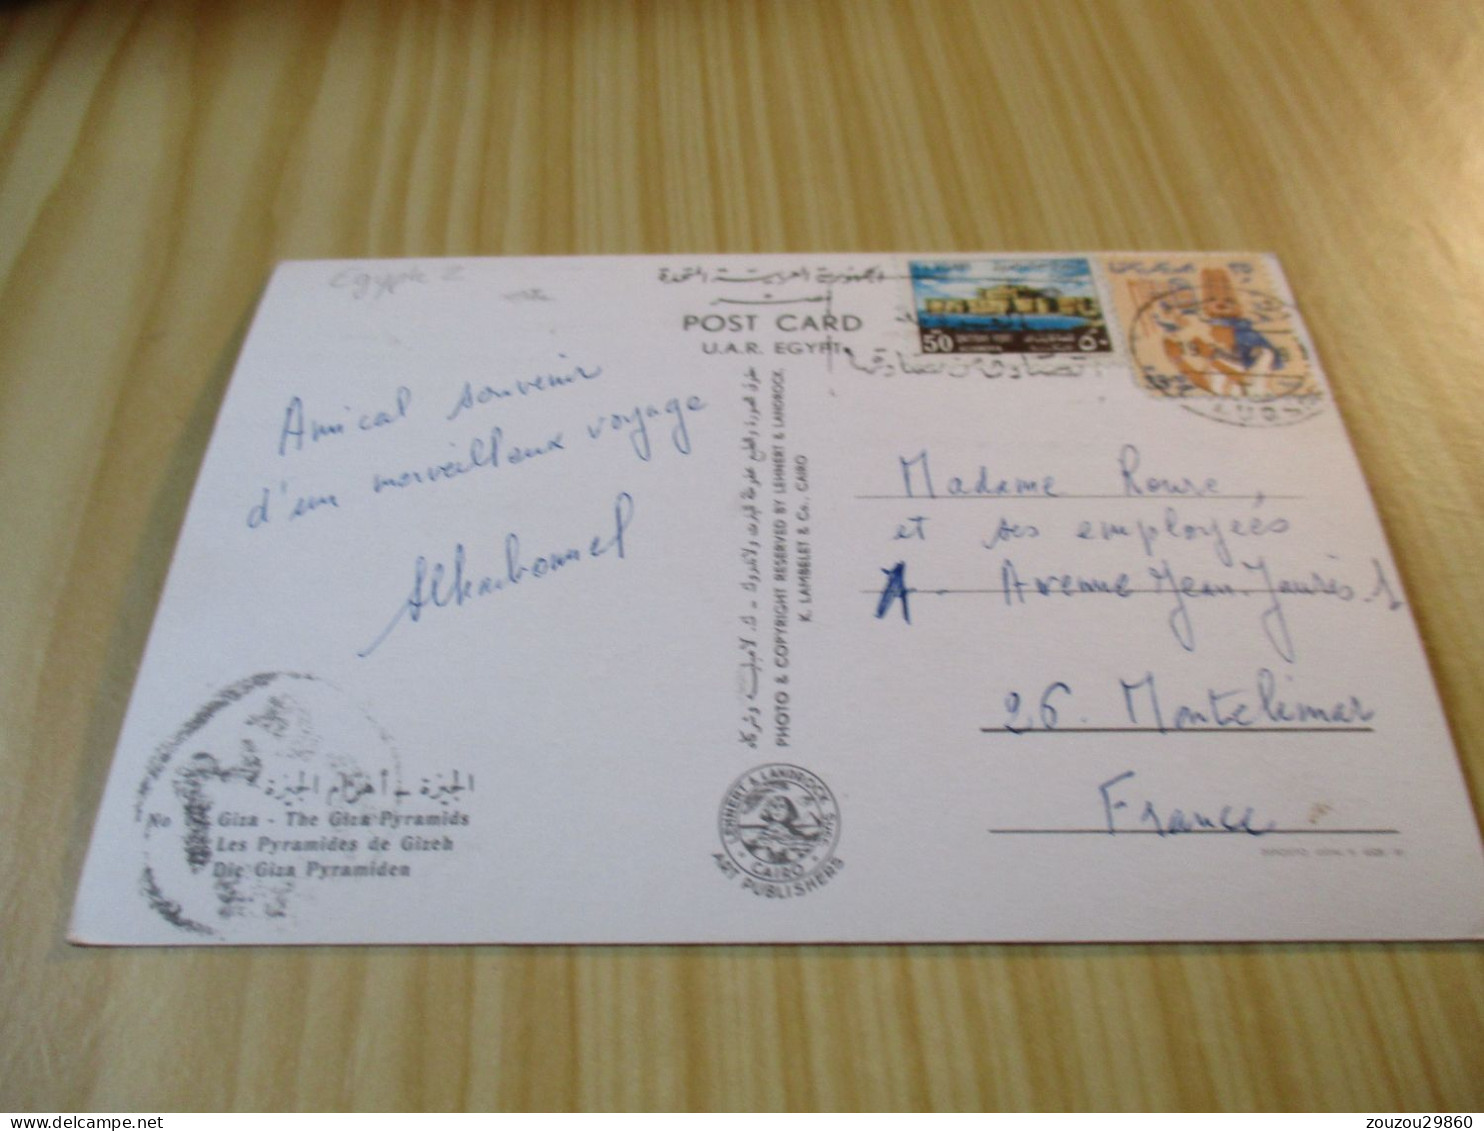 Egypte 2
الجمهورية العربية المتحدة
مصر
POST CARD
U.A.R. EGYPT
50
Amical souvenir
d'un merveilleux voyage
Madame Roure,
et ses employées
Avenue Jean-Jaurès
26. Montelimar
France
PHOTO & COPYRIGHT RESERVED BY LEHNERT & LANDROCK
K. LAMBELET & Co., CAIRO
الجيزة - أهرام الجيزة
No
Giza - The Giza Pyramids
Les Pyramides de Gizeh
Die Giza Pyramiden
LEHNERT & LANDROCK SUCC.
CAIRO
ART PUBLISHERS
zouzou29860